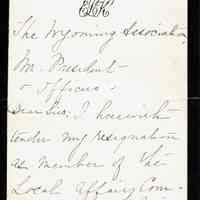 ELK
The Wyoming Association
Mr. President
& Officers
Dear Sirs, I herewith
tender my resignation
as member of the
Local Affairs Com-